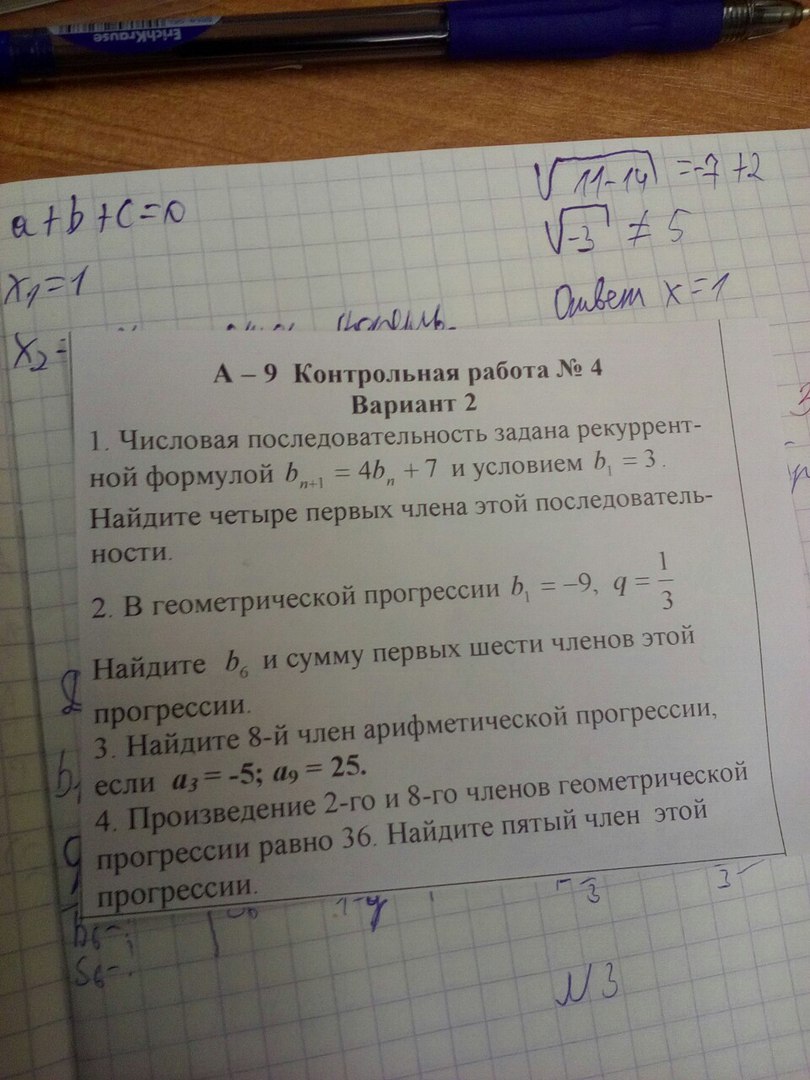 ErichKrause
a+b+c=0
x₁=1
x₂=
√11-14 =-7+2
√-3 ≠ 5
Ответ x=1
А – 9 Контрольная работа № 4
Вариант 2
1. Числовая последовательность задана рекуррент-
ной формулой bₙ₊₁ = 4bₙ + 7 и условием b₁ = 3.
Найдите четыре первых члена этой последователь-
ности.
2. В геометрической прогрессии b₁ = –9, q = 1/3
Найдите b₆ и сумму первых шести членов этой
прогрессии.
3. Найдите 8-й член арифметической прогрессии,
если a₃ = -5; a₉ = 25.
4. Произведение 2-го и 8-го членов геометрической
прогрессии равно 36. Найдите пятый член этой
прогрессии.
b₆-?
S₆-?
N3